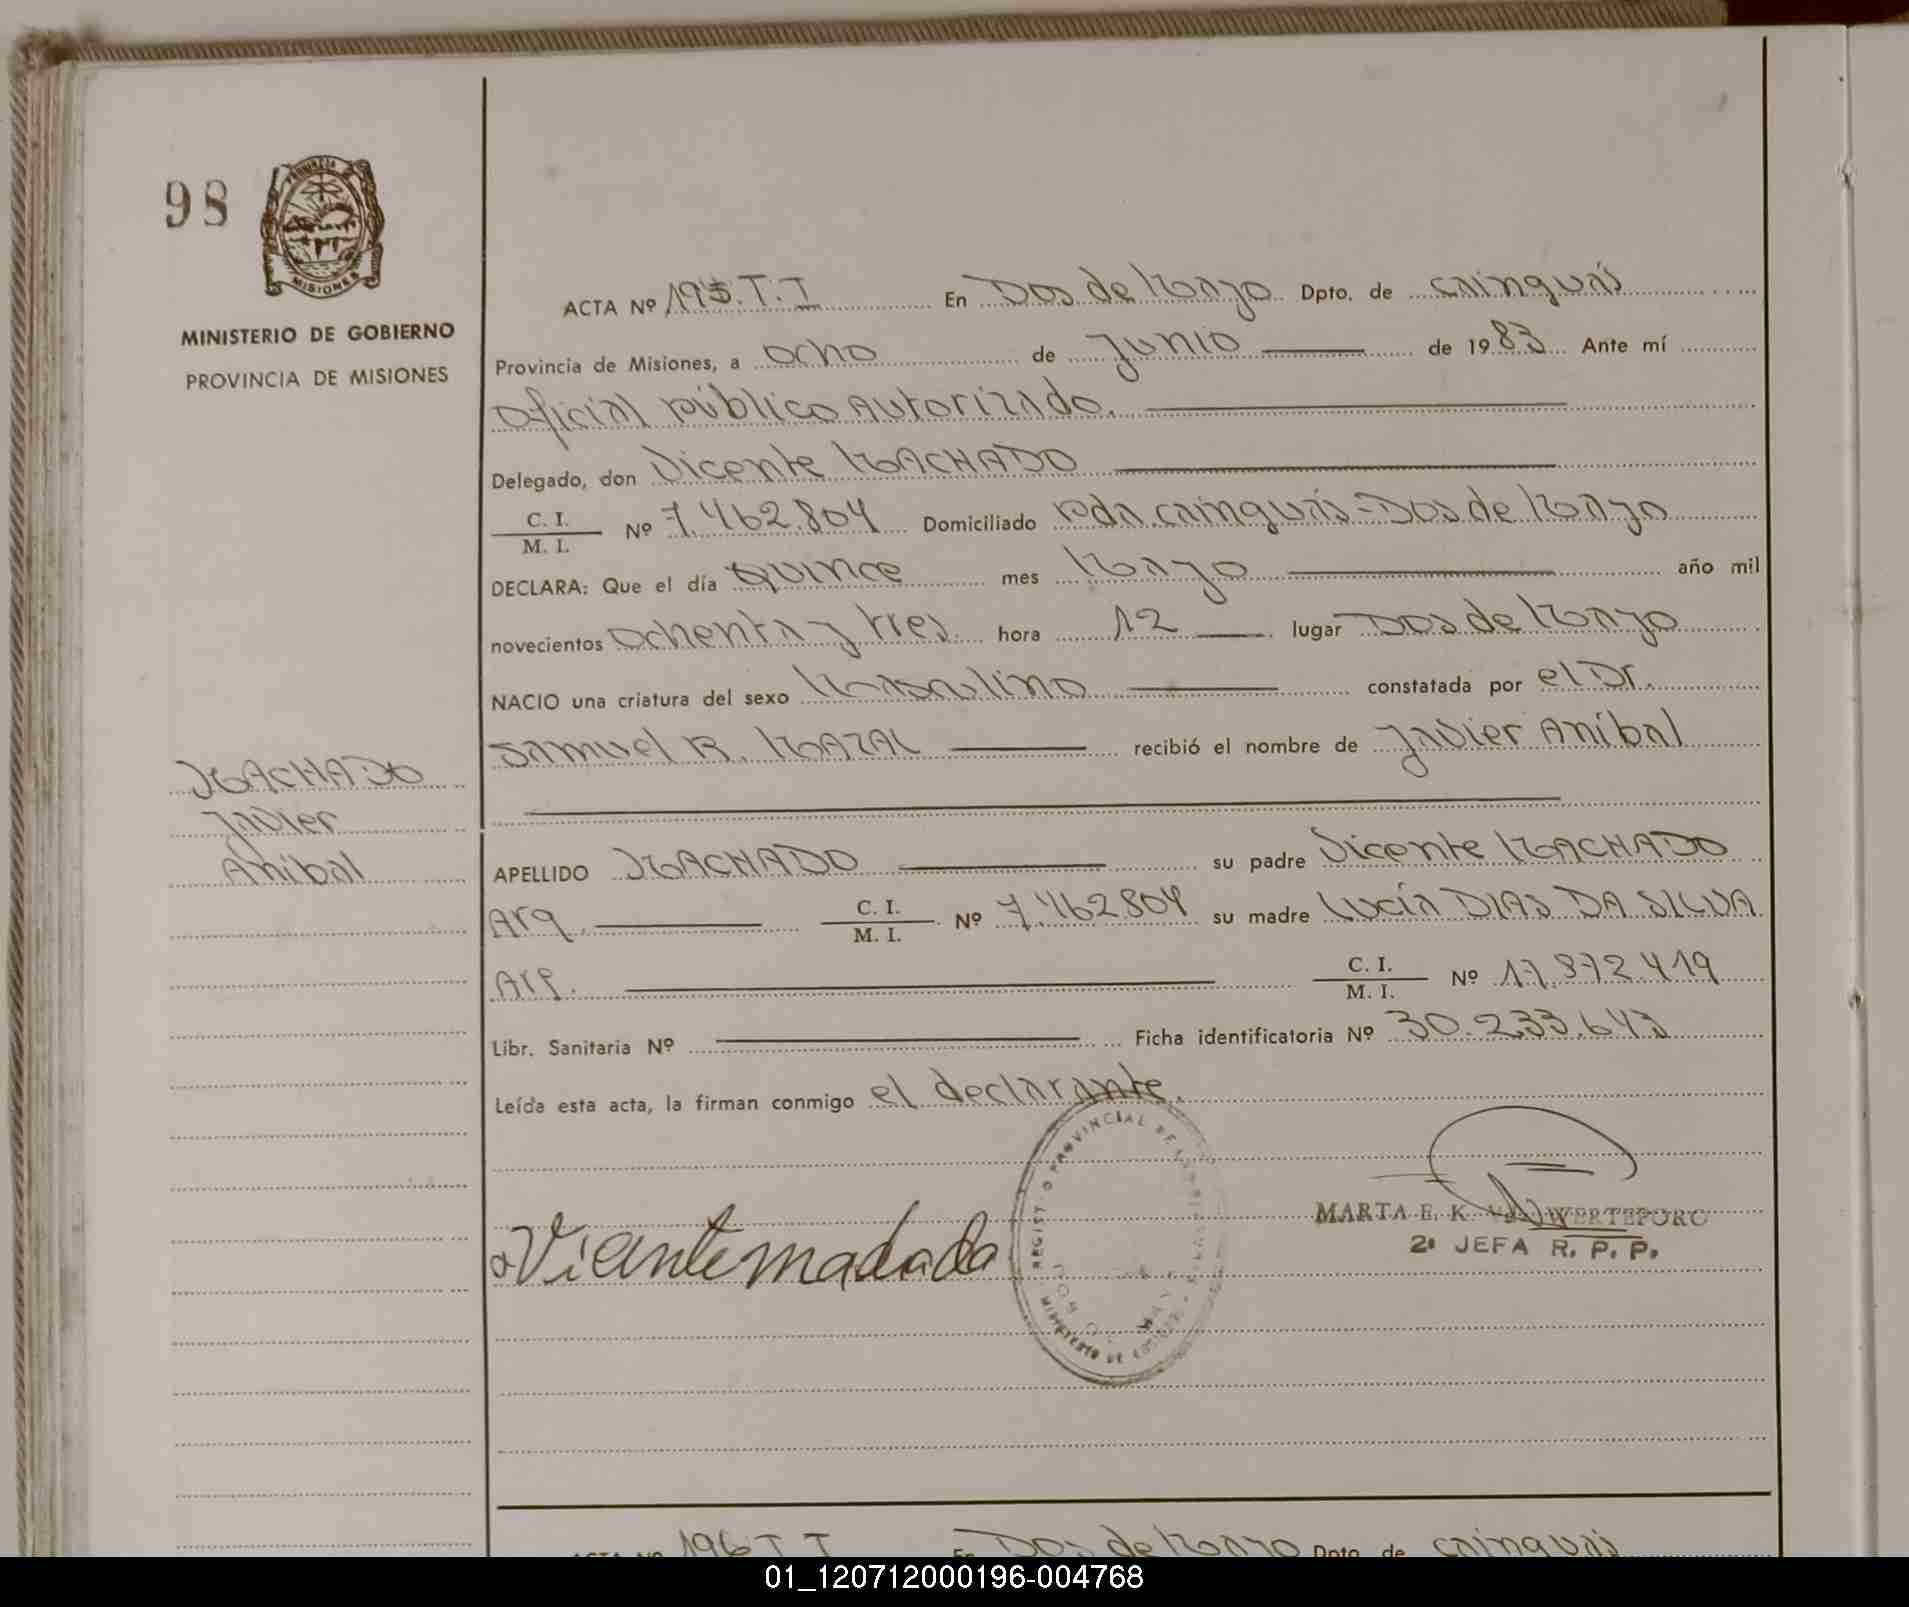 98
PROVINCIA DE
MISIONES
MINISTERIO DE GOBIERNO
PROVINCIA DE MISIONES
ACTA Nº 195.T.I En Dos de Mayo Dpto. de Cainguás
Provincia de Misiones, a ocho de Junio de 1983 Ante mí
Oficial público Autorizado.
Delegado, don Vicente MACHADO
C. I.
M. I. Nº 7.462.804 Domiciliado Pda. Cainguás-Dos de Mayo
DECLARA: Que el día quince mes Mayo año mil
novecientos ochenta y tres. hora 12 lugar Dos de Mayo
NACIO una criatura del sexo Masculino constatada por el Dr.
Samuel R. MAZAL recibió el nombre de Javier Aníbal
MACHADO
Javier
Aníbal
APELLIDO MACHADO su padre Vicente MACHADO
Arg. C. I.
M. I. Nº 7.462.804 su madre Lucía DIAS DA SILVA
Arg. C. I.
M. I. Nº 17.372.419
Libr. Sanitaria Nº Ficha identificatoria Nº 30.233.643
Leída esta acta, la firman conmigo el declarante.
REGISTRO PROVINCIAL DE
MINISTERIO DE
Vicente machado
MARTA E. K. WERTEPORO
2ª JEFA R. P. P.
ACTA Nº 196 T I En Dos de Mayo Dpto. de Cainguás
01_120712000196-004768